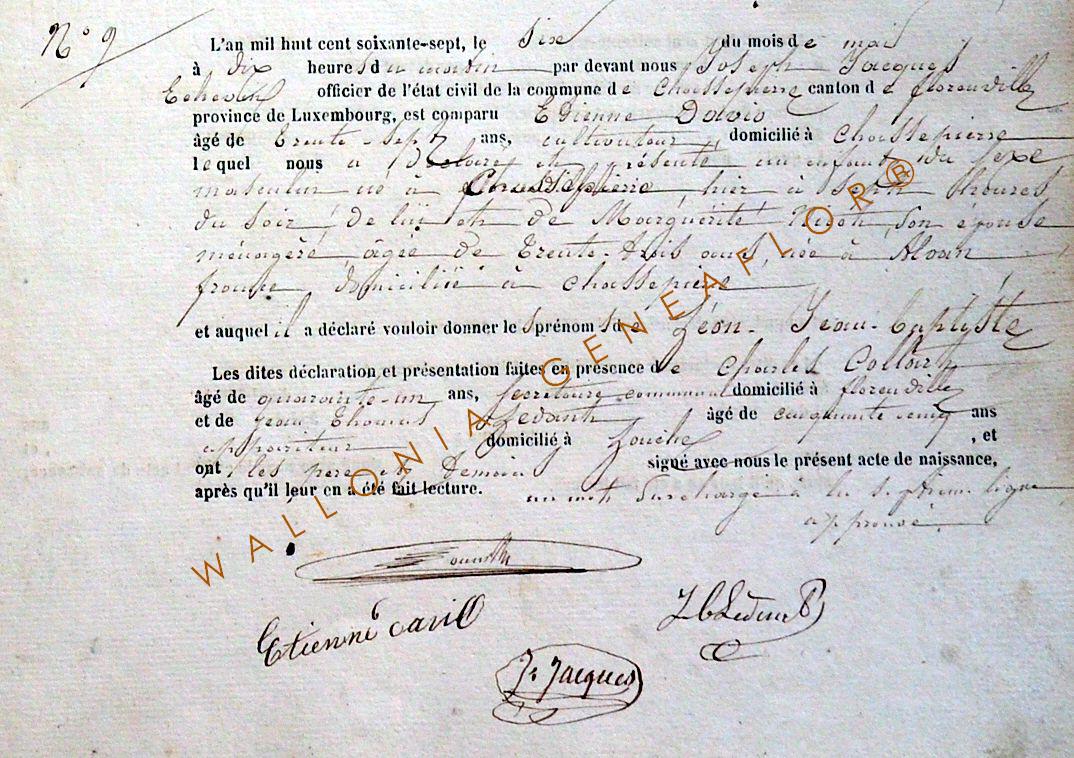 N° 9
L'an mil huit cent soixante-sept, le six du mois de mai
à dix heures du matin par devant nous Joseph Jacques
Echevin officier de l'état civil de la commune de Chassepierre canton de florenville
province de Luxembourg, est comparu Etienne David
âgé de trente-sept ans, cultivateur, domicilié à Chassepierre
lequel nous a déclaré et présenté un enfant du sexe
masculin né à Chassepierre hier à sept heures
du soir, de lui et de Marguerite son épouse
ménagère, âgée de trente-trois ans, née à
france, domiciliée à Chassepierre
et auquel il a déclaré vouloir donner les prénoms de Léon-Jean-baptiste
Les dites déclaration et présentation faites en présence de Charles Collart
âgé de quarante-un ans, secrétaire communal domicilié à florenville
et de Jean Thomas âgé de cinquante cinq ans
appariteur domicilié à , et
ont les père et témoins signé avec nous le présent acte de naissance,
après qu'il leur en a été fait lecture. un mot surchargé à la septième ligne
approuvé.
Etienne david
J. Jacques
WALLONIA GENEAFLOR®